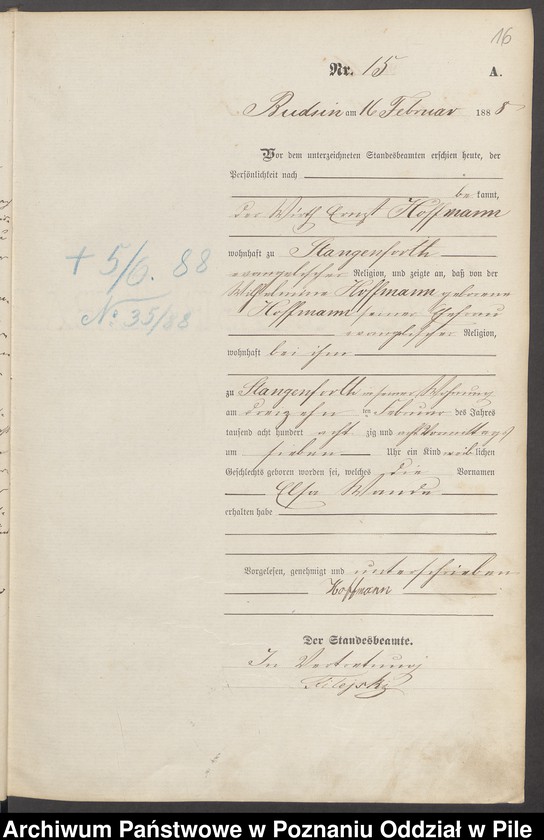 16
Nr. 15
A.
Budsin am 16 Februar 1888
Vor dem unterzeichneten Standesbeamten erschien heute, der
Persönlichkeit nach
be kannt,
der Wirth Ernst Hoffmann
wohnhaft zu Stangenforth
evangelischer Religion, und zeigte an, daß von der
Wilhelmine Hoffmann geborene
Hoffmann seiner Ehefrau
evangelischer Religion,
wohnhaft bei ihm
zu Stangenforth in seiner Wohnung
am dreizehn ten Februar des Jahres
tausend acht hundert acht zig und acht Vormittags
um sieben Uhr ein Kind weib lichen
Geschlechts geboren worden sei, welches die Vornamen
Elsa Wanda
erhalten habe
Vorgelesen, genehmigt und unterschrieben
Hoffmann
Der Standesbeamte.
In Vertretung
+ 5/6. 88
No. 35/88
Archiwum Państwowe w Poznaniu Oddział w Pile